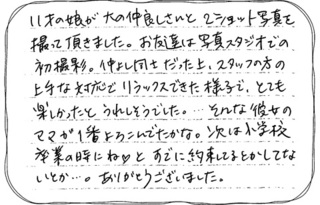 11才の娘が大の仲良しさんと2ショット写真を
撮って頂きました。お友達は写真スタジオでの
初撮影。仲よし同士だった上、スタッフの方の
上手な対応でリラックスできた様子で、とても
楽しかったとうれしそうでした。…そんな彼女の
ママが1番よろこんでたかな。次は小学校
卒業の時にね♡とすでに約束してるとかしてな
いとか…。ありがとうございました。